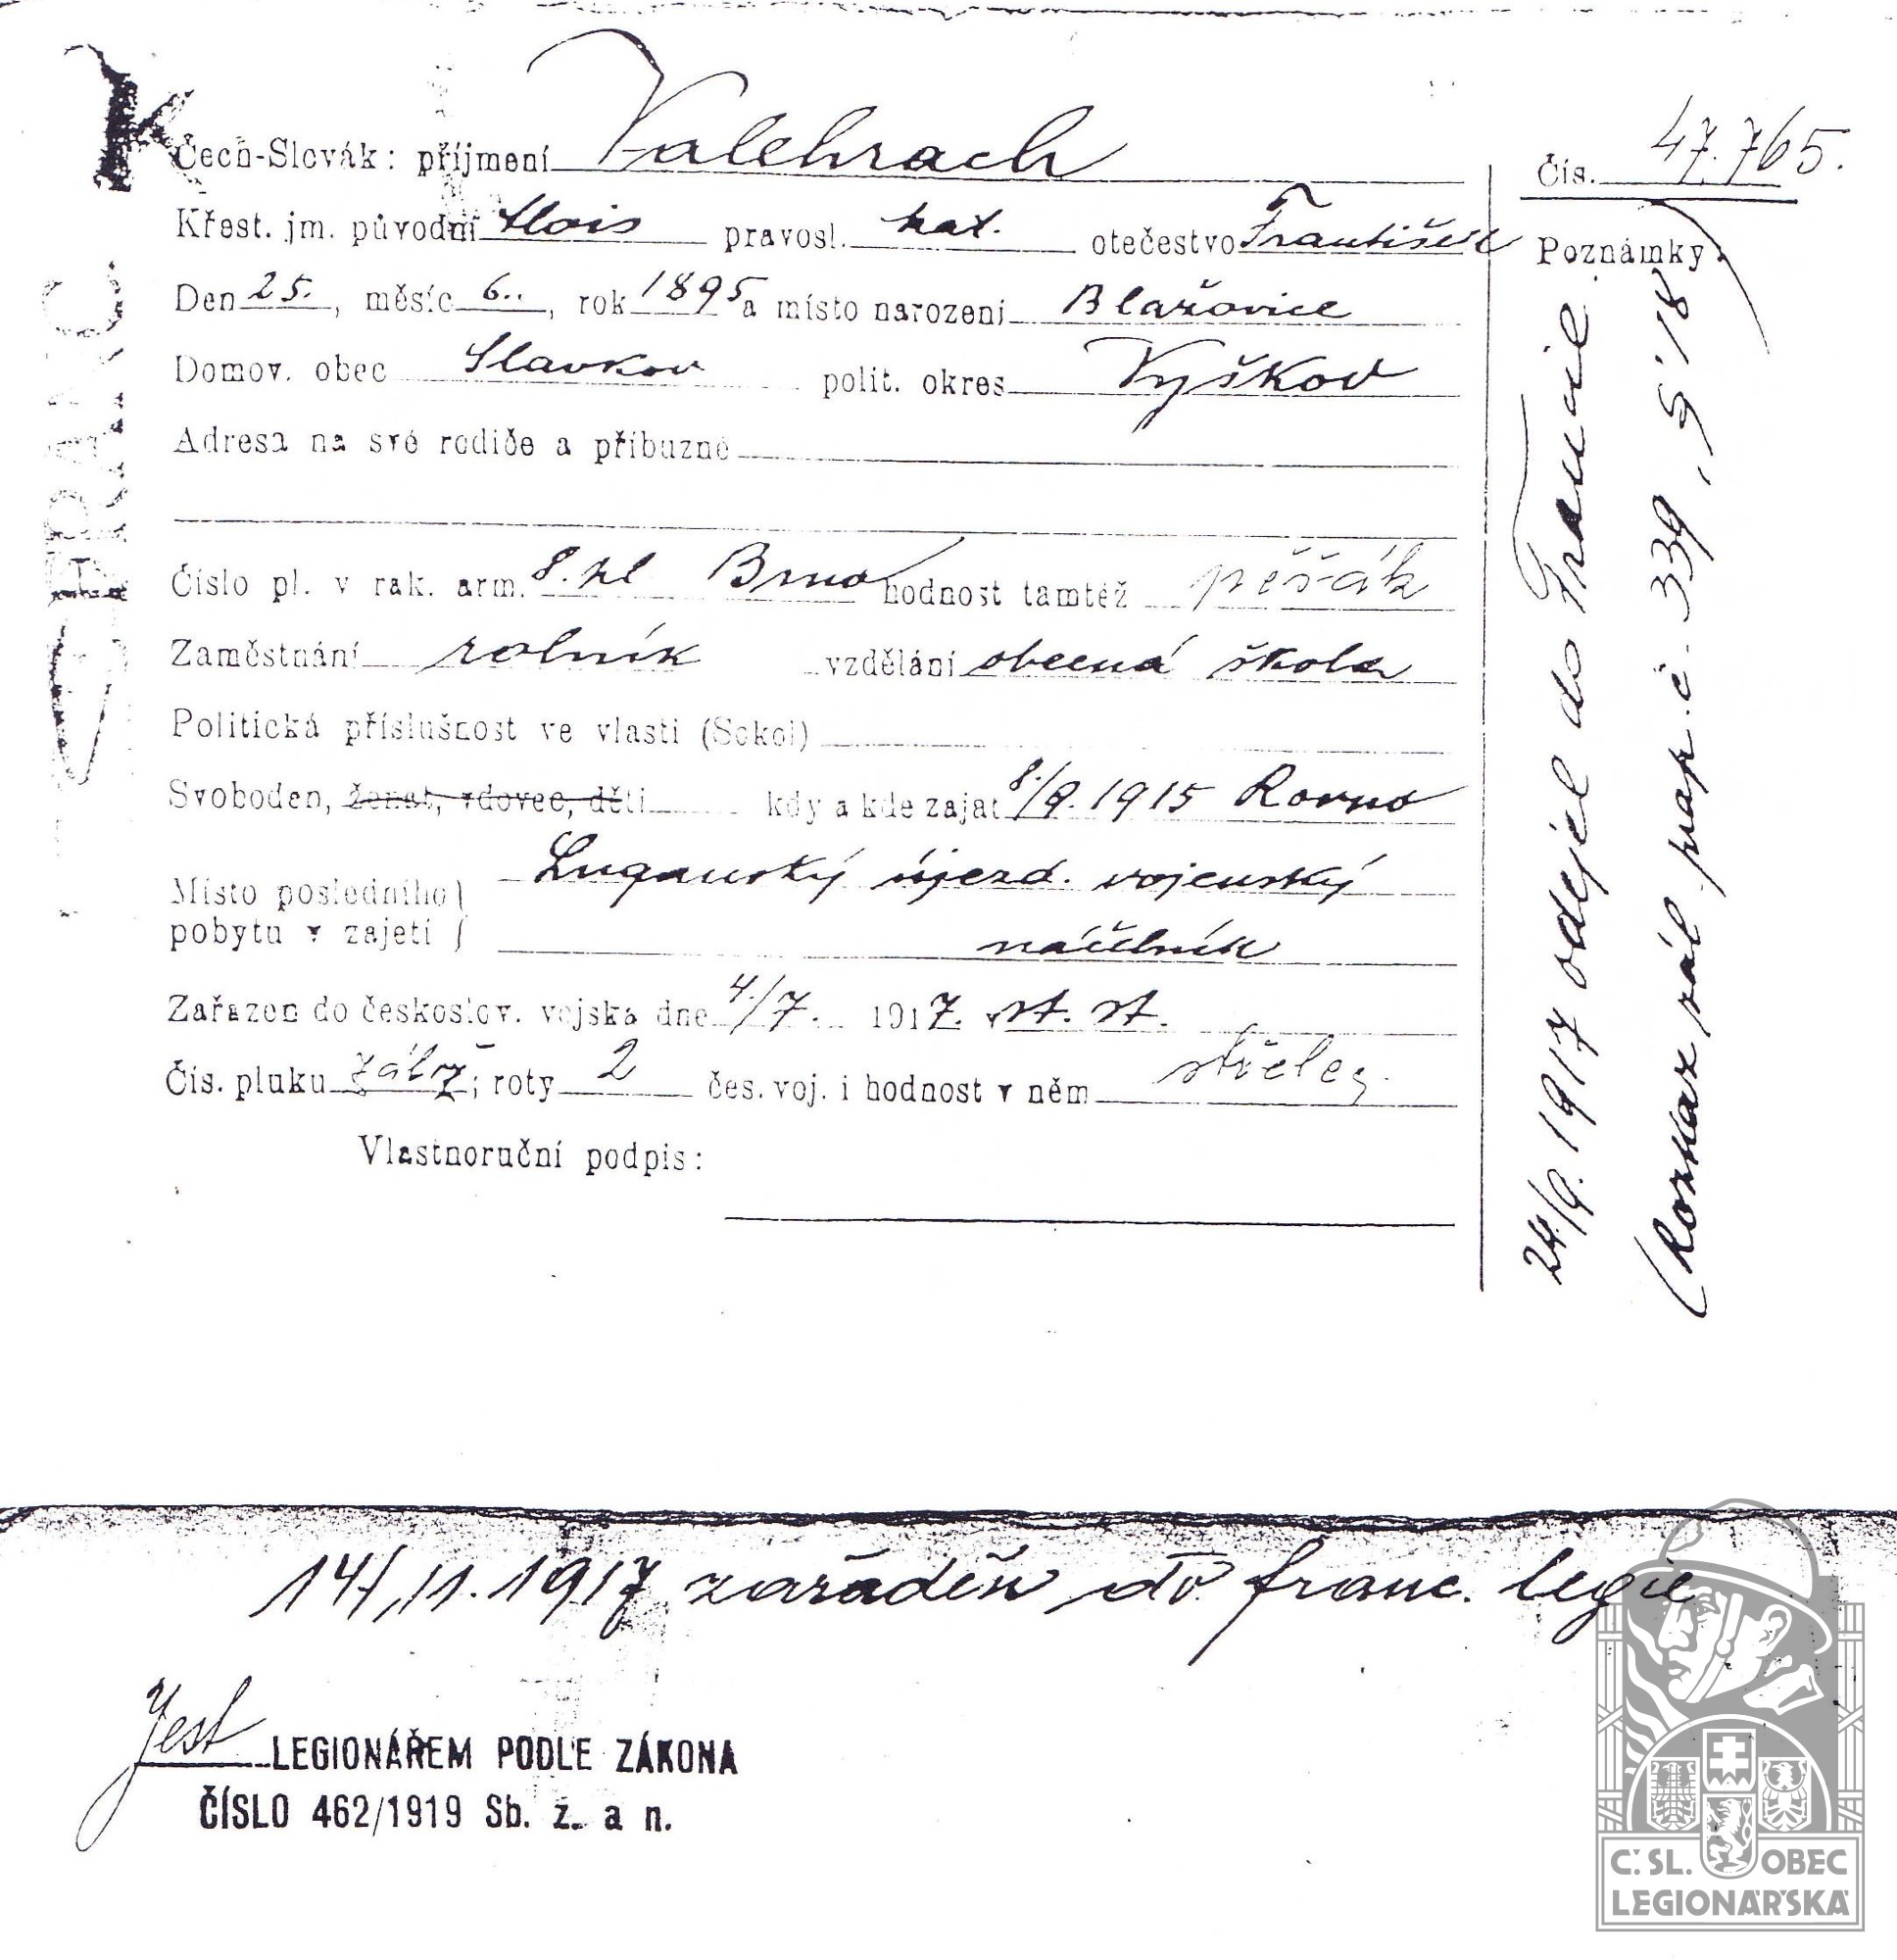 Čech-Slovák: příjmení Valehrach
Čís. 47.765.
Křest. jm. původní Alois pravosl. kat. otečestvo František
Poznámky
Den 25., měsíc 6., rok 1895 a místo narození Blažovice
Domov. obec Slavkov polit. okres Vyškov
Adresa na své rodiče a příbuzné
Číslo pl. v rak. arm. 8. pl Brno hodnost tamtéž pěšák
Zaměstnání rolník vzdělání obecná škola
Politická příslušnost ve vlasti (Sokol)
Svoboden, ženat, vdovec, děti kdy a kde zajat 8./9. 1915 Rovno
Místo posledního pobytu v zajetí Luganský újezd. vojenský
náčelník
Zařazen do českoslov. vojska dne 4./7. 1917. v st. st.
Čís. pluku zálž; roty 2 čes. voj. i hodnost v něm střelec.
Vlastnoruční podpis:
24/9. 1917 odejel do Francie.
(Rozkaz zál. prap. č. 339, 5'18)
FRANC
14/11. 1917 zařáděn do franc. legie
Jest LEGIONÁŘEM PODLE ZÁKONA
ČÍSLO 462/1919 Sb. z. a n.
Č. SL. OBEC
LEGIONÁŘSKÁ